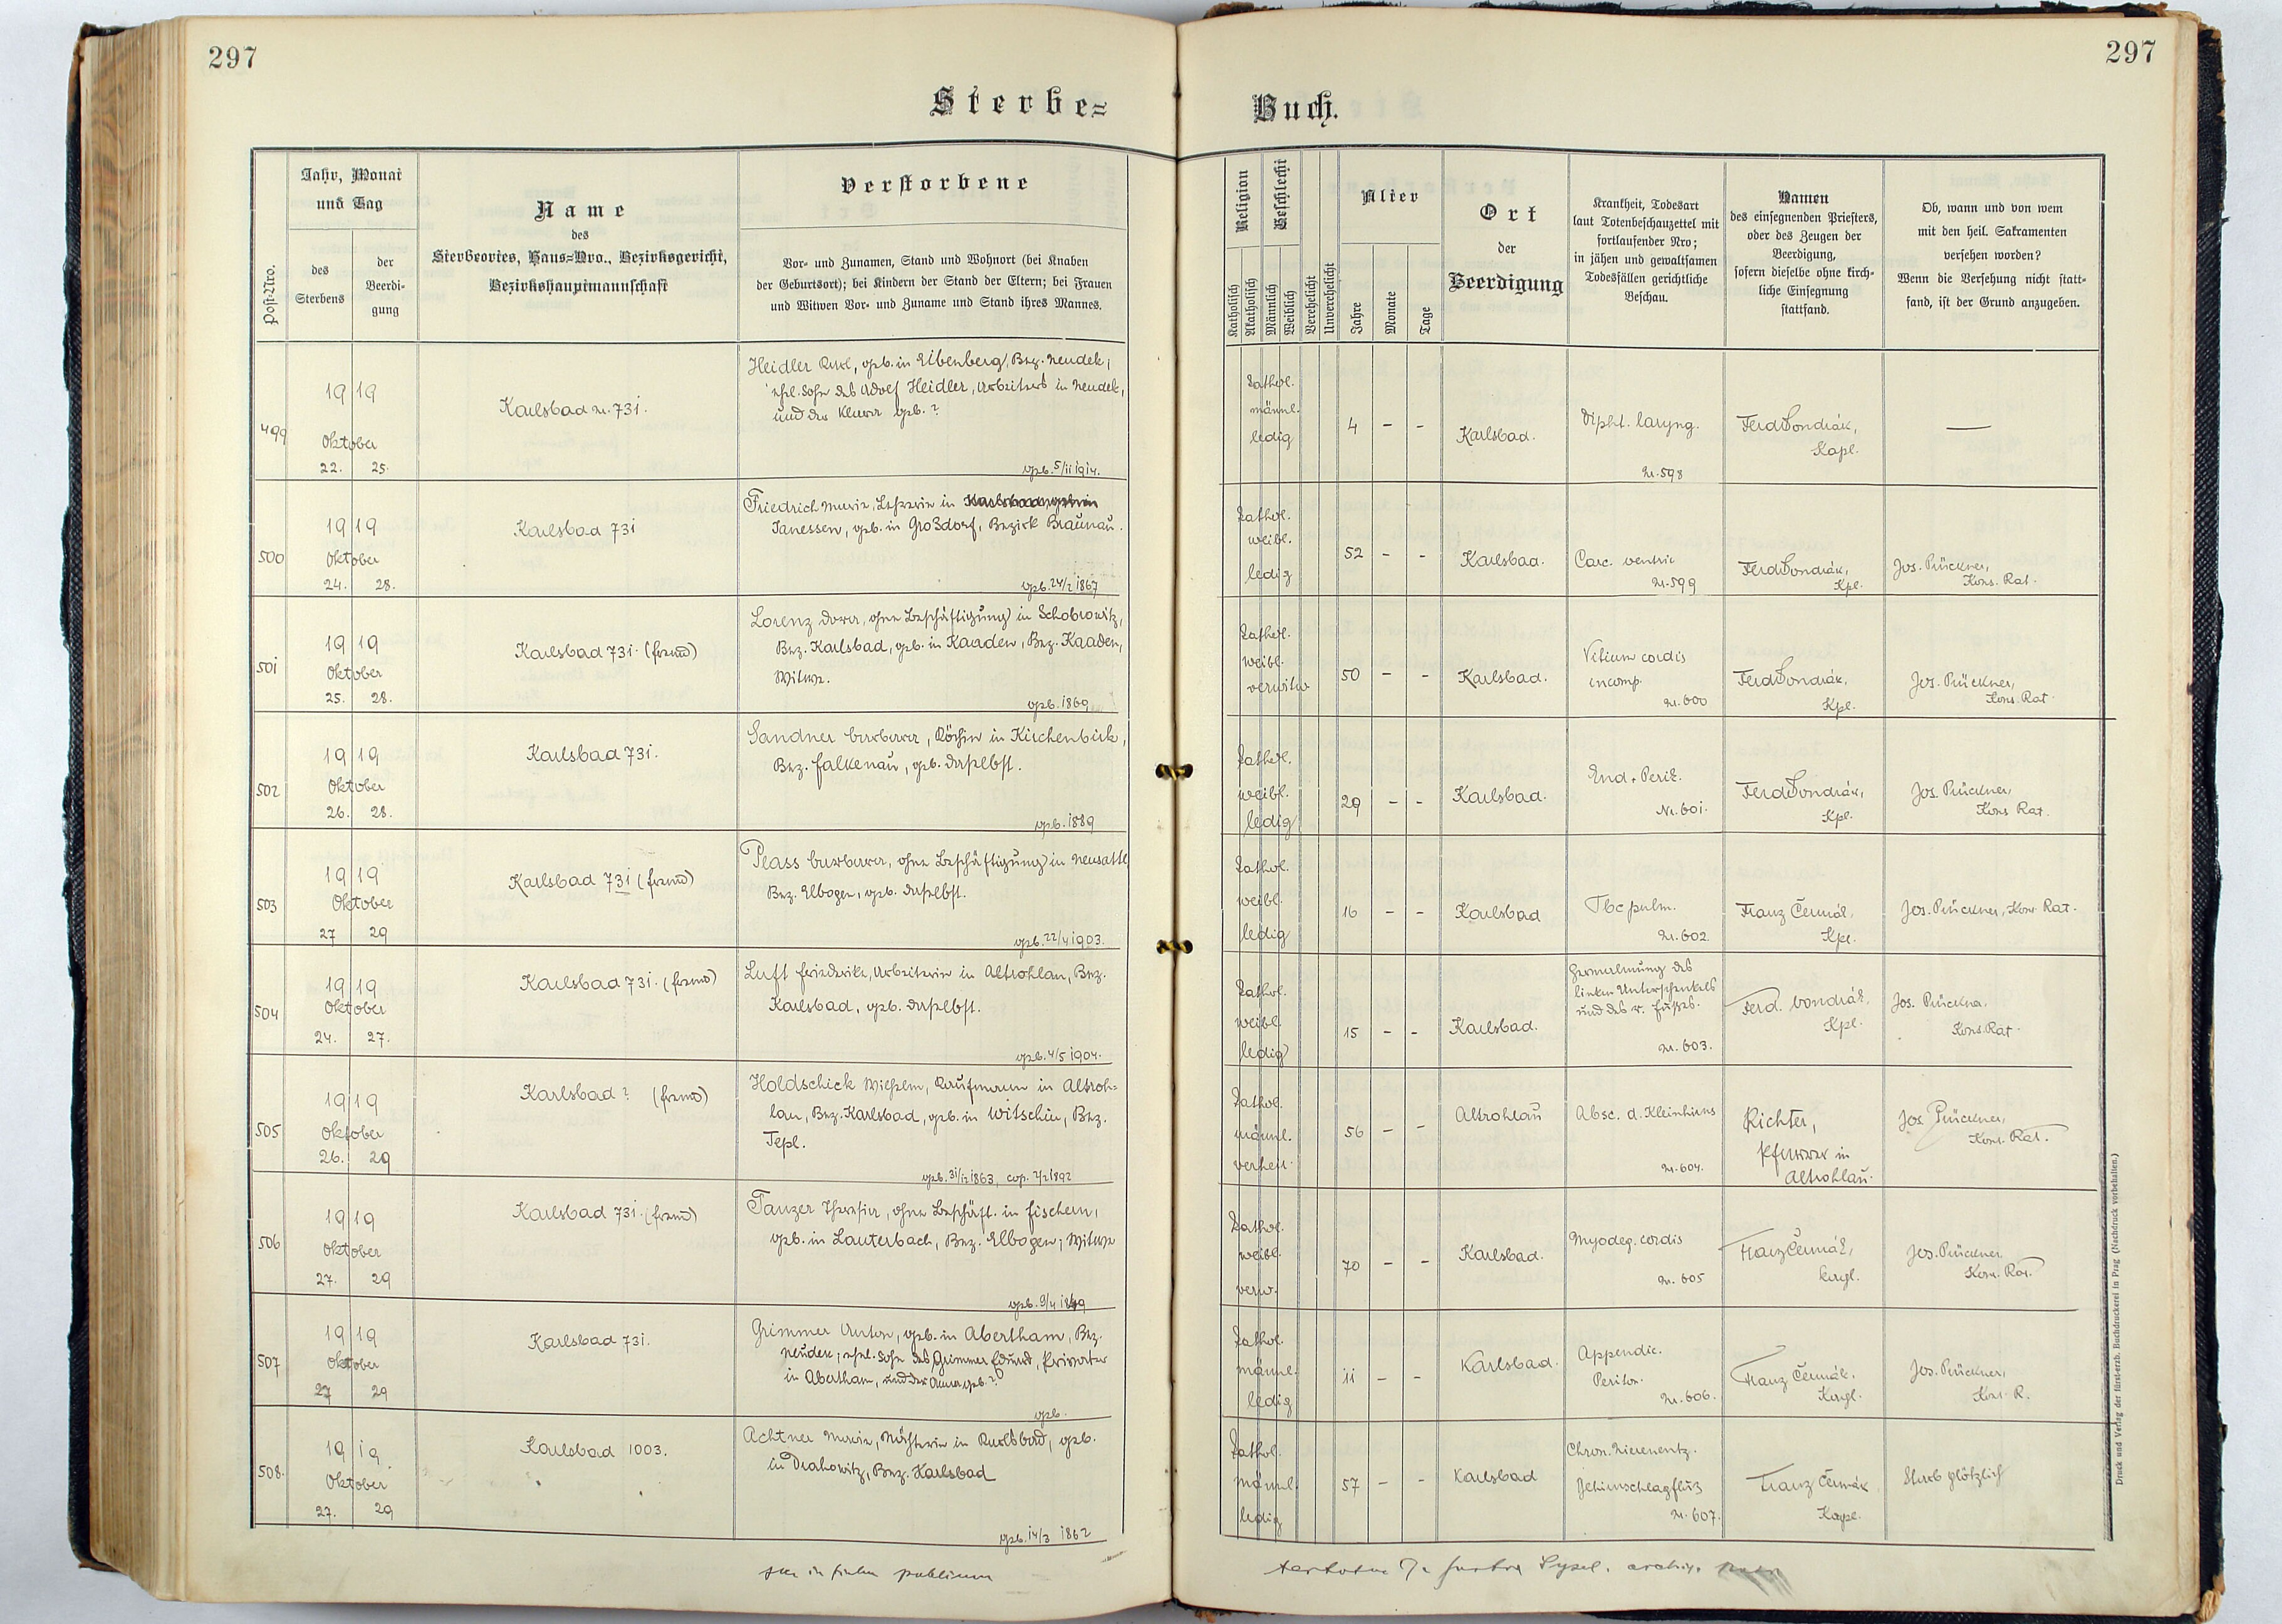 297
297
Sterbe=
Buch.
Post-Nro.
Jahr, Monat
und Tag
des
Sterbens
der
Beerdi-
gung
Name
des
Sterbeortes, Haus=Nro., Bezirksgericht,
Bezirkshauptmannschaft
Verstorbene
Vor- und Zunamen, Stand und Wohnort (bei Knaben
der Geburtsort); bei Kindern der Stand der Eltern; bei Frauen
und Witwen Vor- und Zuname und Stand ihres Mannes.
Religion
Katholisch
Akatholisch
Geschlecht
Männlich
Weiblich
Verehelicht
Unverehelicht
Alter
Jahre
Monate
Tage
Ort
der
Beerdigung
Krankheit, Todesart
laut Totenbeschauzettel mit
fortlaufender Nro;
in jähen und gewaltsamen
Todesfällen gerichtliche
Beschau.
Namen
des einsegnenden Priesters,
oder des Zeugen der
Beerdigung,
sofern dieselbe ohne kirch-
liche Einsegnung
stattfand.
Ob, wann und von wem
mit den heil. Sakramenten
versehen worden?
Wenn die Versehung nicht statt-
fand, ist der Grund anzugeben.
499
1919
Oktober
22. 25.
Karlsbad nr. 731.
Heidler Karl, geb. in Eibenberg, Bez. Neudek,
ehl. Sohn des Adolf Heidler, Arbeiters in Neudek,
und der Klara geb. ?
geb. 5/11 1914.
kathol.
männl.
ledig
4 - -
Karlsbad.
Dipht. laryng.
Nr. 598
Ferd. Vondrák,
Kapl.
—
500
1919
Oktober
24. 28.
Karlsbad 731
Friedrich Marie, Lehrerin in
Janessen, geb. in Großdorf, Bezirk Braunau.
geb. 24/2 1867
kathol.
weibl.
ledig
52 - -
Karlsbad.
Carc. ventric
Nr. 599
Ferd. Vondrák,
Kpl.
Jos. Prückner,
Kons. Rat.
501
1919
Oktober
25. 28.
Karlsbad 731. (fremd)
Lorenz Dora, ohne Beschäftigung in Schobrowitz,
Bez. Karlsbad, geb. in Kaaden, Bez. Kaaden,
Witwe.
geb. 1869
kathol.
weibl.
verwitw
50 - -
Karlsbad.
Vitium cordis
incomp.
Nr. 600
Ferd. Vondrák,
Kpl.
Jos. Prückner,
Kons. Rat
502
1919
Oktober
26. 28.
Karlsbad 731.
Sandner Barbara, Köchin in Kirchenbirk,
Bez. Falkenau, geb. daselbst.
geb. 1889
kathol.
weibl.
ledig
29 - -
Karlsbad.
End. Perik.
Nr. 601.
Ferd. Vondrák,
Kpl.
Jos. Prückner,
Kons Rat.
503
1919
Oktober
27 29
Karlsbad 731 (fremd)
Plass Barbara, ohne Beschäftigung in Neusattl
Bez. Elbogen, geb. daselbst.
geb. 22/4 1903.
kathol.
weibl.
ledig
16 - -
Karlsbad
Tbc pulm.
Nr. 602.
Franz Čermák,
Kpl.
Jos. Prückner, Kons. Rat.
504
1919
Oktober
24. 27.
Karlsbad 731. (fremd)
Luft Friederike, Arbeiterin in Altrohlau, Bez.
Karlsbad, geb. daselbst.
geb. 4/5 1904.
kathol.
weibl.
ledig
15 - -
Karlsbad.
Zermalmung des
linken Unterschenkels
und des r. Fußes.
Nr. 603.
Ferd. Vondrák,
Kpl.
Jos. Prückner,
Kons. Rat.
505
1919
Oktober
26. 29
Karlsbad ? (fremd)
Holdschick Wilhelm, Kaufmann in Altroh=
lau, Bez. Karlsbad, geb. in Witschin, Bez.
Tepl.
geb. 31/12 1863, cop. 7/2 1892
kathol.
männl.
verheir.
56 - -
Altrohlau
Absc. d. Kleinhirns
Nr. 604.
Richter,
Pfarrer in
Altrohlau.
Jos Prückner,
Kons. Rat.
506
1919
Oktober
27. 29
Karlsbad 731. (fremd)
Tanzer Theresia, ohne Beschäft. in Fischern,
geb. in Lauterbach, Bez. Elbogen, Witwe
geb. 9/4 1849
kathol.
weibl.
verw.
70 - -
Karlsbad.
Myodeg. cordis
Nr. 605
Franz Čermák,
Kapl.
Jos. Prückner,
Kons. Rat.
507
1919
Oktober
27 29
Karlsbad 731.
Grimmer Anton, geb. in Abertham, Bez.
Neudek; ehel. Sohn des Grimmer Eduard, Privatier
in Abertham, und der Anna geb. ?
geb.
kathol.
männl.
ledig
11 - -
Karlsbad.
Appendic.
Periton.
Nr. 606.
Franz Čermák,
Kapl.
Jos. Prückner,
Kons. R.
508.
1919.
Oktober
27. 29
Karlsbad 1003.
Achtner Marie, Näherin in Karlsbad, geb.
in Drahowitz, Bez. Karlsbad
geb. 14/3 1862
kathol.
männl.
ledig
57 - -
Karlsbad
Chron. Nierenentz.
Gehirnschlagfluß
Nr. 607.
Franz Čermák
Kapl.
Starb plötzlich
in publicum
Druck und Verlag der fürst-erzb. Buchdruckerei in Prag (Nachdruck vorbehalten.)